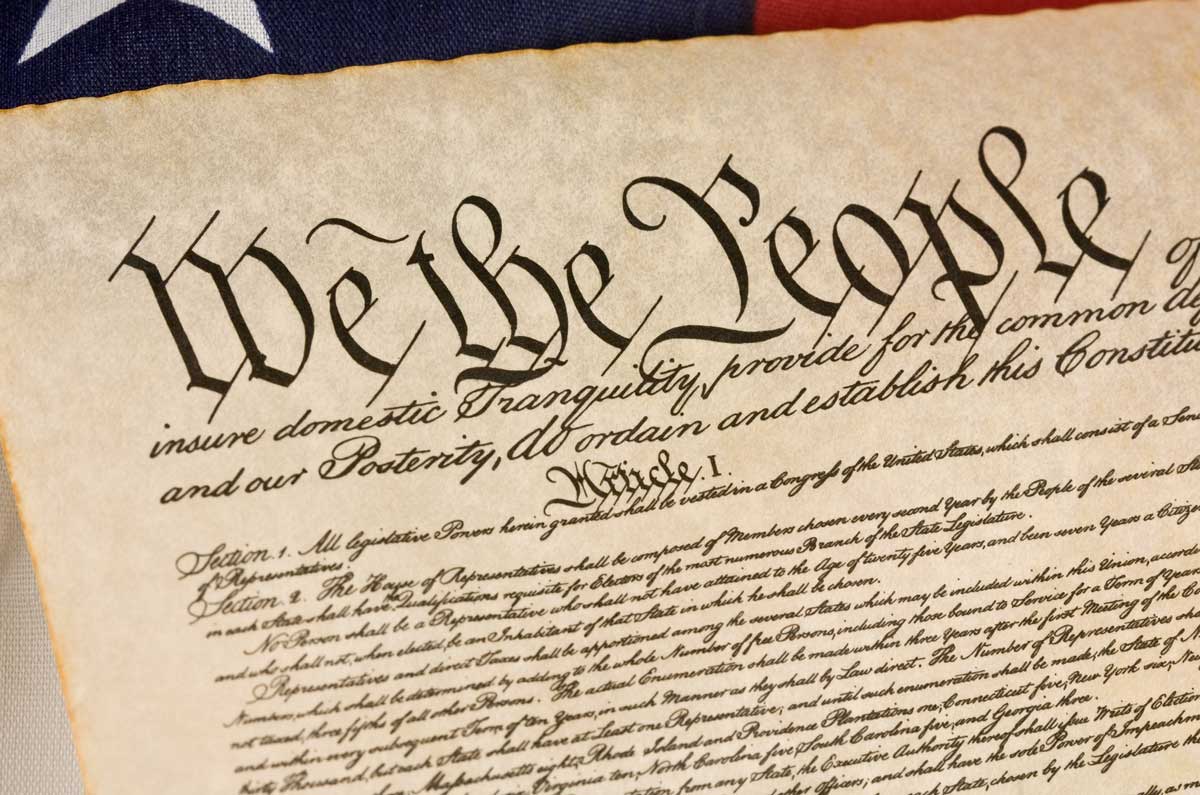 We the People of
insure domestic Tranquility, provide for the common
and our Posterity, do ordain and establish this
Article. I.
Section. 1. All legislative Powers herein granted shall be vested in a Congress of the United States, which shall consist of a
of Representatives.
Section. 2. The House of Representatives shall be composed of Members chosen every second Year by the People of the several
in each State shall have the Qualifications requisite for Electors of the most numerous Branch of the State Legislature.
No Person shall be a Representative who shall not have attained to the Age of twenty five Years, and been seven Years a
and who shall not, when elected, be an Inhabitant of that State in which he shall be chosen.
Representatives and direct Taxes shall be apportioned among the several States which may be included within this Union,
Numbers, which shall be determined by adding to the whole Number of free Persons, including those bound to Service for a Term of Years
not taxed, three fifths of all other Persons. The actual Enumeration shall be made within three Years after the first Meeting of the
and within every subsequent Term of ten Years, in such Manner as they shall by Law direct. The Number of Representatives
thirty Thousand, but each State shall have at Least one Representative; and until such enumeration shall be made, the State of
Massachusetts eight, Rhode Island and Providence Plantations one, Connecticut five, New York six,
Virginia ten, North Carolina five South Carolina five, and Georgia three.
from any State, the Executive Authority thereof shall issue Writs of
other Officers; and shall have the sole Power of
State, chosen by the Legislature